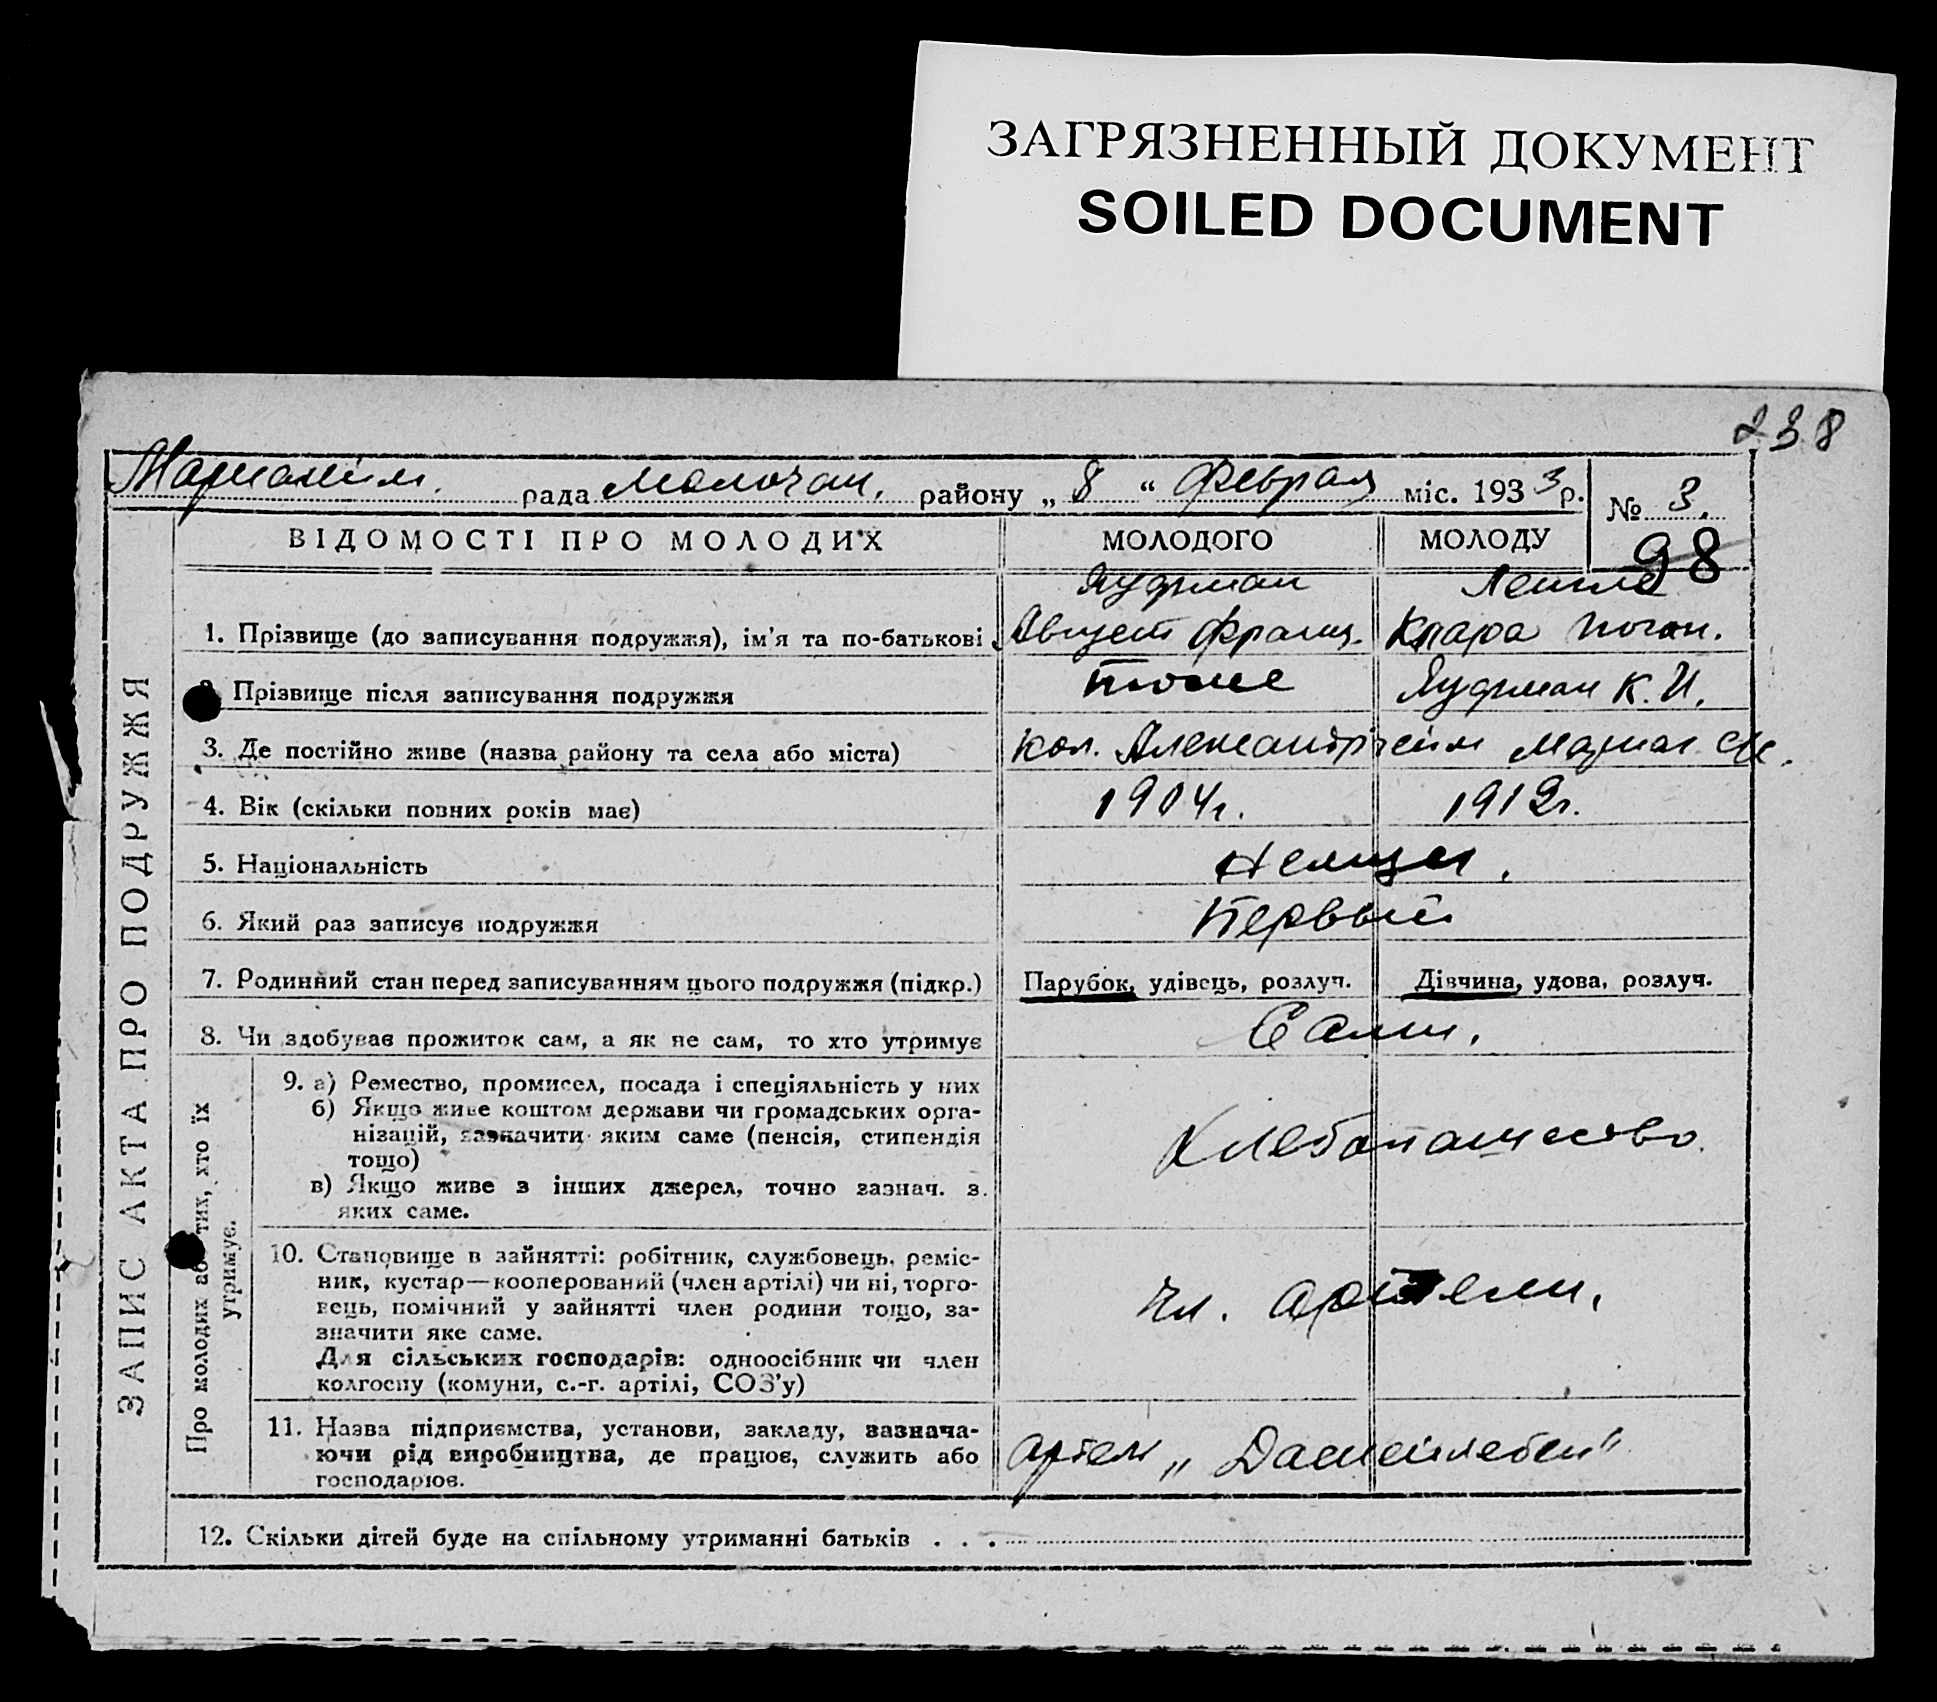 ЗАГРЯЗНЕННЫЙ ДОКУМЕНТ
SOILED DOCUMENT
238
рада Молочан. району „ 8 “ Февраля міс. 1933 р.
№ 3.
98
ЗАПИС АКТА ПРО ПОДРУЖЖЯ
ВІДОМОСТІ ПРО МОЛОДИХ МОЛОДОГО МОЛОДУ
1. Прізвище (до записування подружжя), ім’я та по-батькові Август Франц. Клара Иоган.
Прізвище після записування подружжя тоже К. И.
3. Де постійно живе (назва району та села або міста) кол. Александргейм
4. Вік (скільки повних років має) 1904г. 1912г.
5. Національність Немцы.
6. Який раз записує подружжя Первый
7. Родинний стан перед записуванням цього подружжя (підкр.) Парубок, удівець, розлуч. Дівчина, удова, розлуч.
8. Чи здобував прожиток сам, а як не сам, то хто утримує Сами.
Про молодих або тих, хто їх утримує.
9. а) Ремество, промисел, посада і спеціяльність у них
б) Якщо живе коштом держави чи громадських орга-
нізацій, зазначити яким саме (пенсія, стипендія
тощо)
в) Якщо живе з інших джерел, точно зазнач. з
яких саме.
Хлебопашество.
10. Становище в зайнятті: робітник, службовець, реміс-
ник, кустар—кооперований (член артілі) чи ні, торго-
вець, помічний у зайнятті член родини тощо, за-
значити яке саме.
Для сільських господарів: одноосібник чи член
колгоспу (комуни, с.-г. артілі, СОЗ’у)
Чл. артели.
11. Назва підприємства, установи, закладу, зазнача-
ючи рід виробництва, де працює, служить або
господарює.
Артель
12. Скільки дітей буде на спільному утриманні батьків . . .